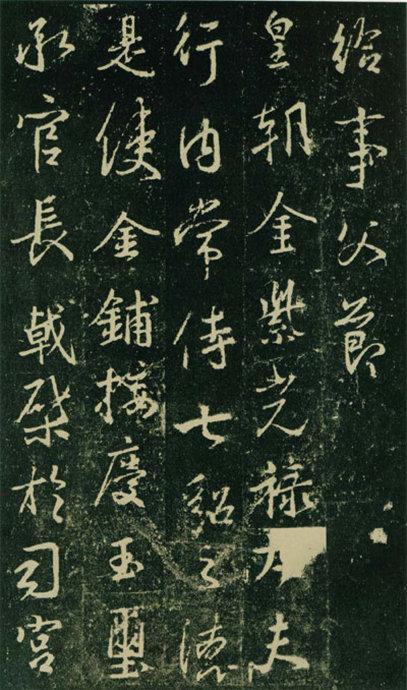 給事父節
皇朝金紫光祿大夫
行内常侍七貂之德
是使金鋪接慶玉璽
承官長戟棨於司宮